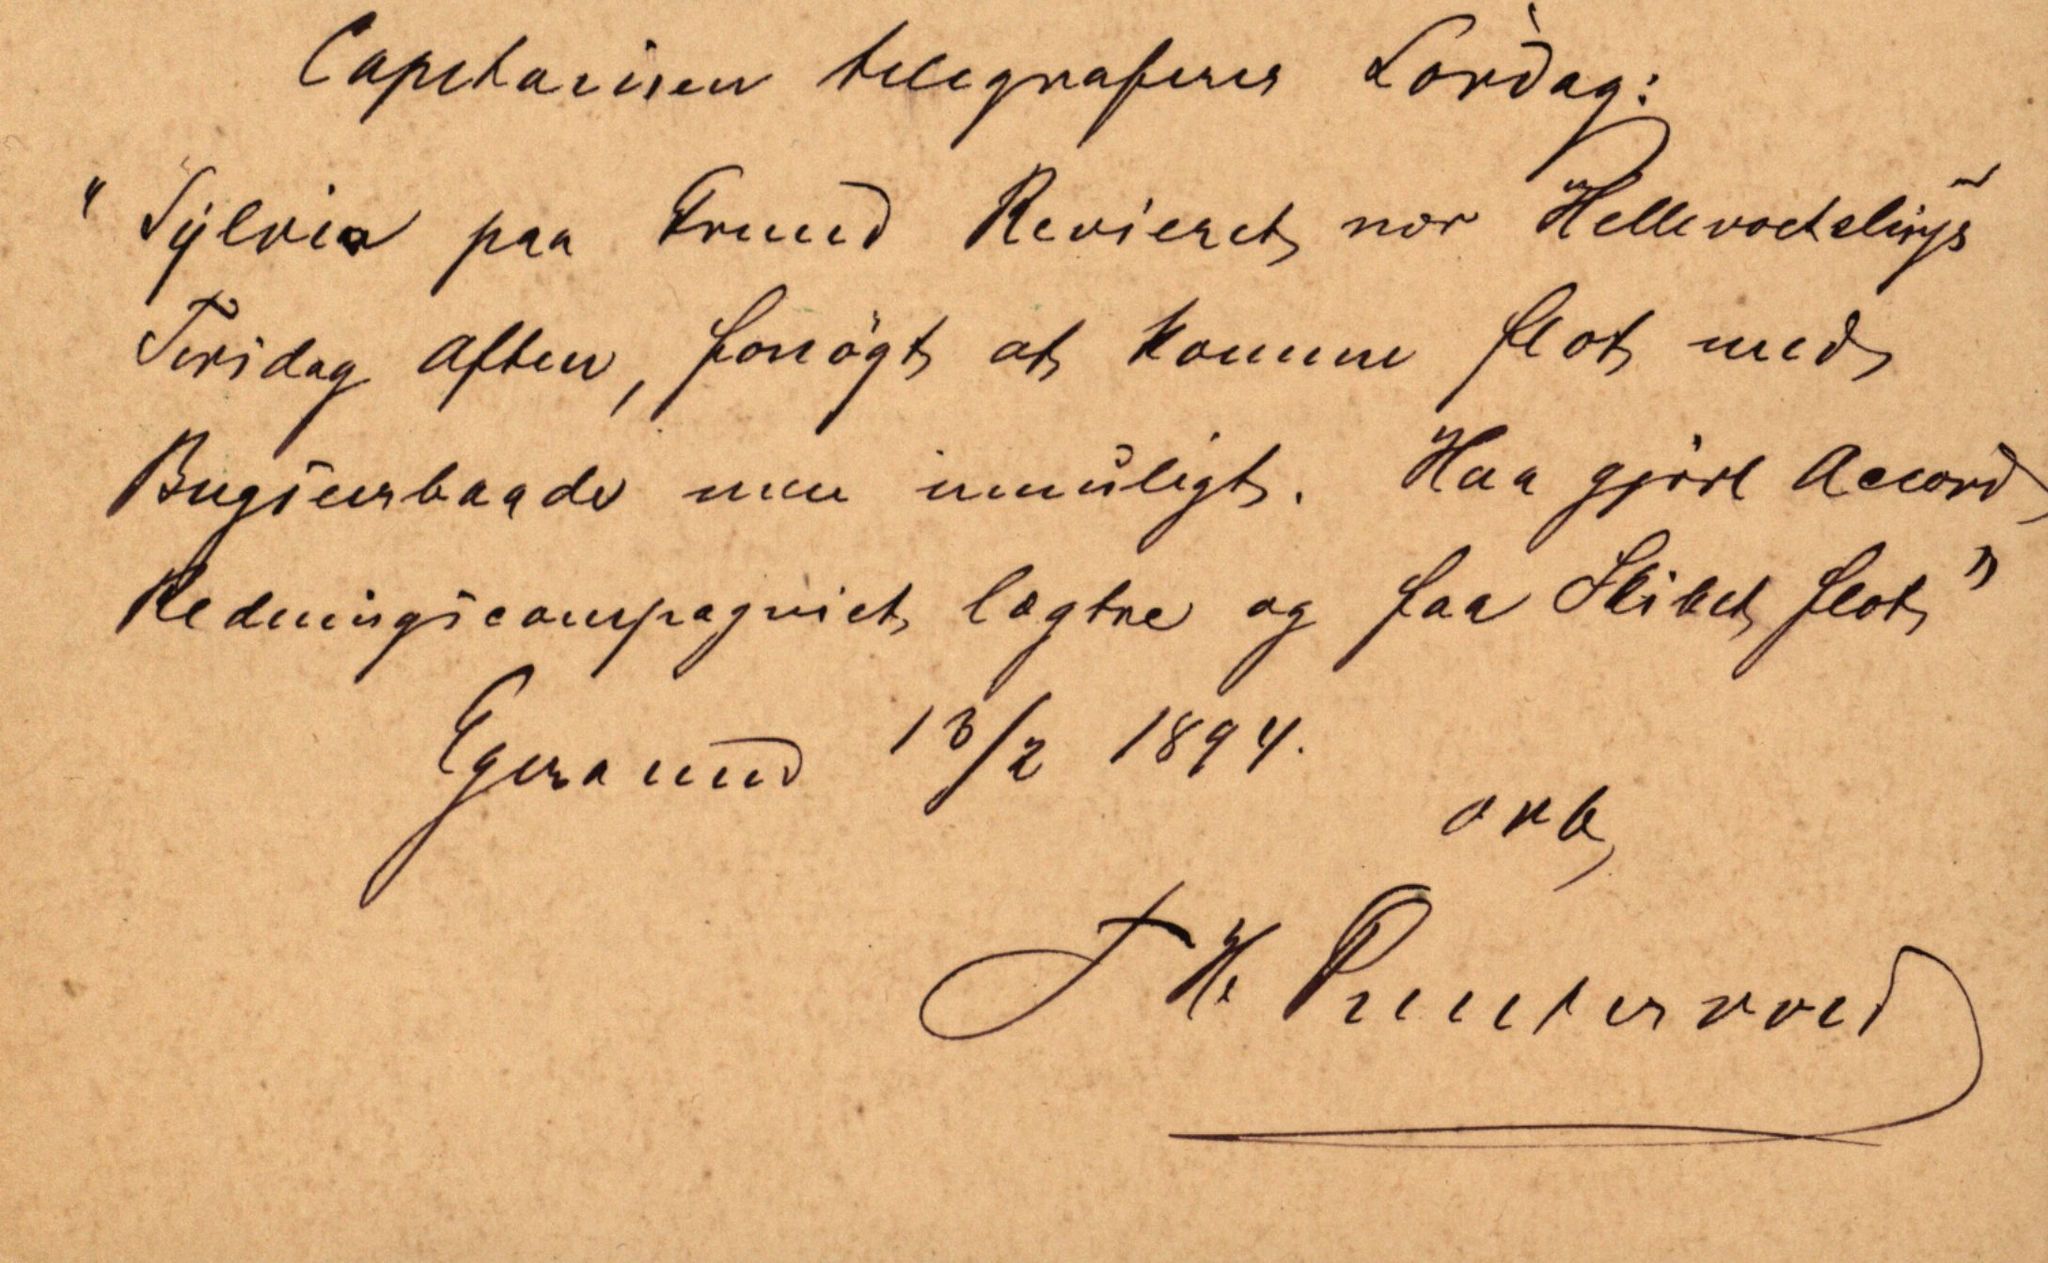 Capitainen telegraferer Lørdag:
"Sylvia paa Grund Revieret nær Hellevoetsluys
Tirsdag Aften, forsögt at komme flot med
Bugserbaade men umuligt. Har gjort Accord
Redningscompagniet lægtre og faa Skibet flot"
Egersund 13/2 1894.
ærb